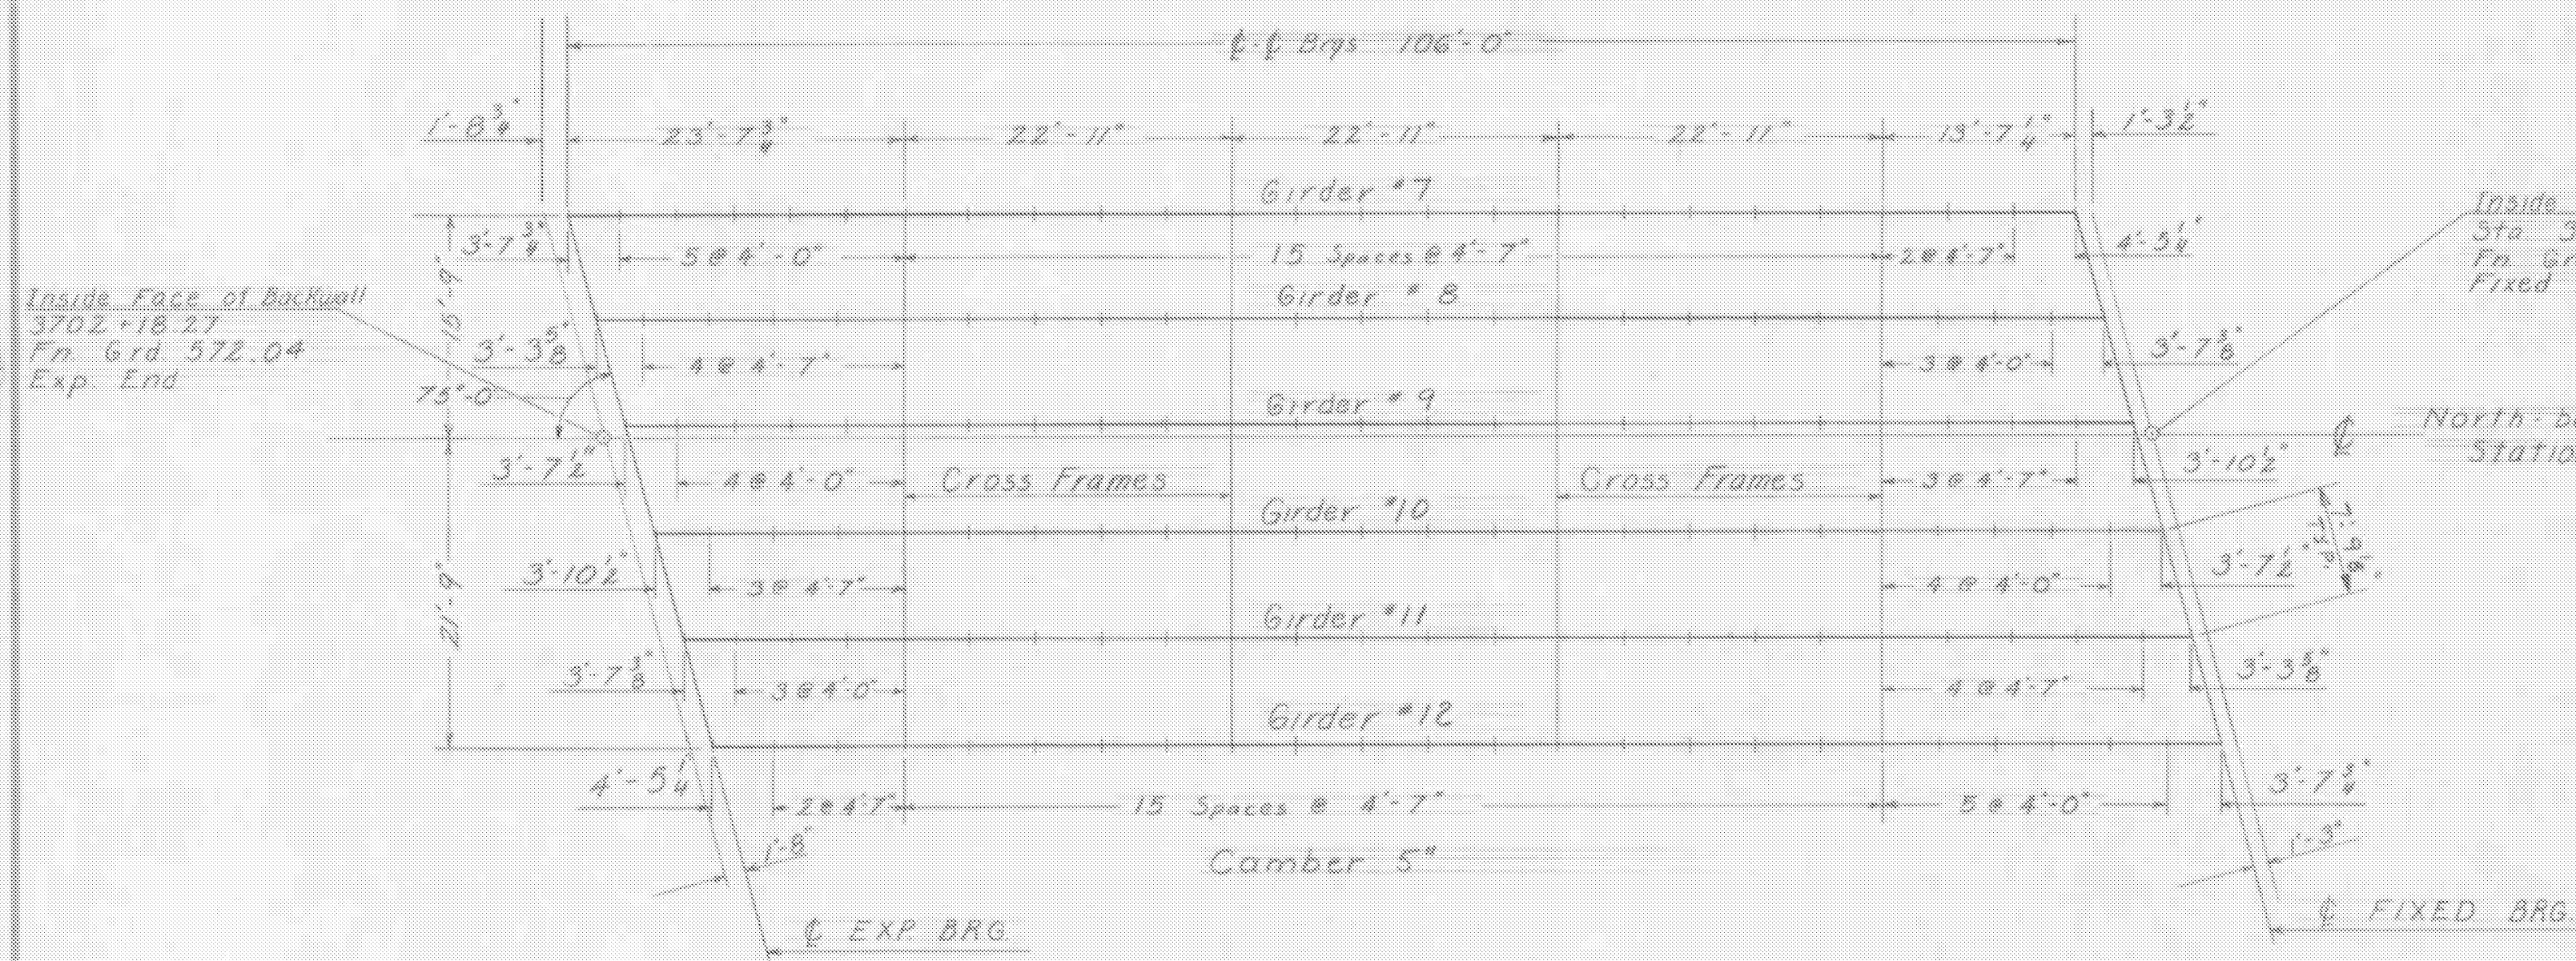 ℄-℄ Brgs. 106'-0"
1'-8 3/4" 23'-7 3/4" 22'-11" 22'-11" 22'-11" 13'-7 1/4" 1'-3 1/2"
Girder #7
3'-7 3/4" 5 @ 4'-0" 15 Spaces @ 4'-7" 2 @ 4'-7" 4'-5 1/4"
15'-9"
Inside
Sta. 3
Fn. Gr
Fixed
Girder #8
Inside Face of Backwall
3702+18.27
Fn. Grd. 572.04
Exp. End
3'-3 5/8" 4 @ 4'-7" 3 @ 4'-0" 3'-7 3/8"
75°-0'
Girder #9
℄ North-b
Station
3'-7 1/2" 4 @ 4'-0" Cross Frames Cross Frames 3 @ 4'-7" 3'-10 1/2"
Girder #10
21'-9"
3'-10 1/2" 3 @ 4'-7" 4 @ 4'-0" 3'-7 1/2"
Girder #11
3'-7 3/8" 3 @ 4'-0" 4 @ 4'-7" 3'-3 5/8"
Girder #12
4'-5 1/4" 2 @ 4'-7" 15 Spaces @ 4'-7" 5 @ 4'-0" 3'-7 3/4"
1'-8" Camber 5" 1'-3"
℄ EXP. BRG. ℄ FIXED BRG.